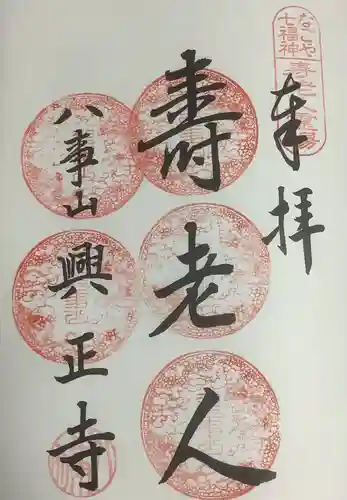 奉拝
なごや
七福神
寿老人霊場
壽老人
八事山
興正寺